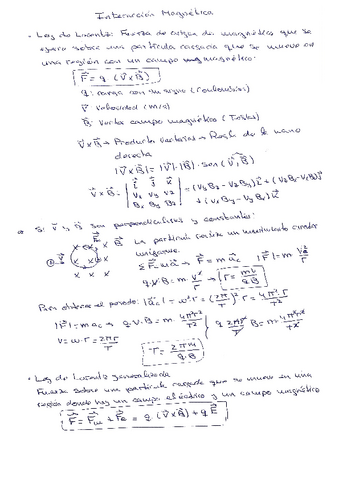 Interacción Magnética
• Ley de Lorentz: Fuerza de origen magnético que se
ejerce sobre una partícula cargada que se mueve en
una región con un campo magnético:
F⃗ = q · (V⃗ x B⃗)
q: carga con su signo (Coulombios)
V⃗: velocidad (m/s)
B⃗: Vector campo magnético (Teslas)
V⃗ x B⃗ → Producto vectorial → Regla de la mano
derecha
|V⃗ x B⃗| = |V⃗| · |B⃗| · sen (V⃗, B⃗)
V⃗ x B⃗ = | i j k ; Vx Vy Vz ; Bx By Bz | = (Vy Bz - Vz By) i⃗ + (Vz Bx - Vx Bz) j⃗
+ (Vx By - Vy Bx) k⃗
Si V⃗ y B⃗ son perpendiculares y constantes:
B⃗ La partícula describe un movimiento circular
uniforme.
F⃗ = m a⃗c |F⃗| = m · v²/r
q · V · B = m · v²/r → r = mv/(q·B)
Para obtener el periodo: |a⃗c| = w² · r = (2π/T)² r = 4π² · r/T²
|F⃗| = m ac → q · V · B = m · 4π² r/T²
v = w · r = 2πr/T
q 2πr/T B = m · 4π² · r/T²
T = 2πm/(q · B)
• Ley de Lorentz generalizada
Fuerza sobre una partícula cargada que se mueve en una
región donde hay un campo eléctrico y un campo magnético
F⃗ = F⃗m + F⃗e = q (V⃗ x B⃗) + q E⃗